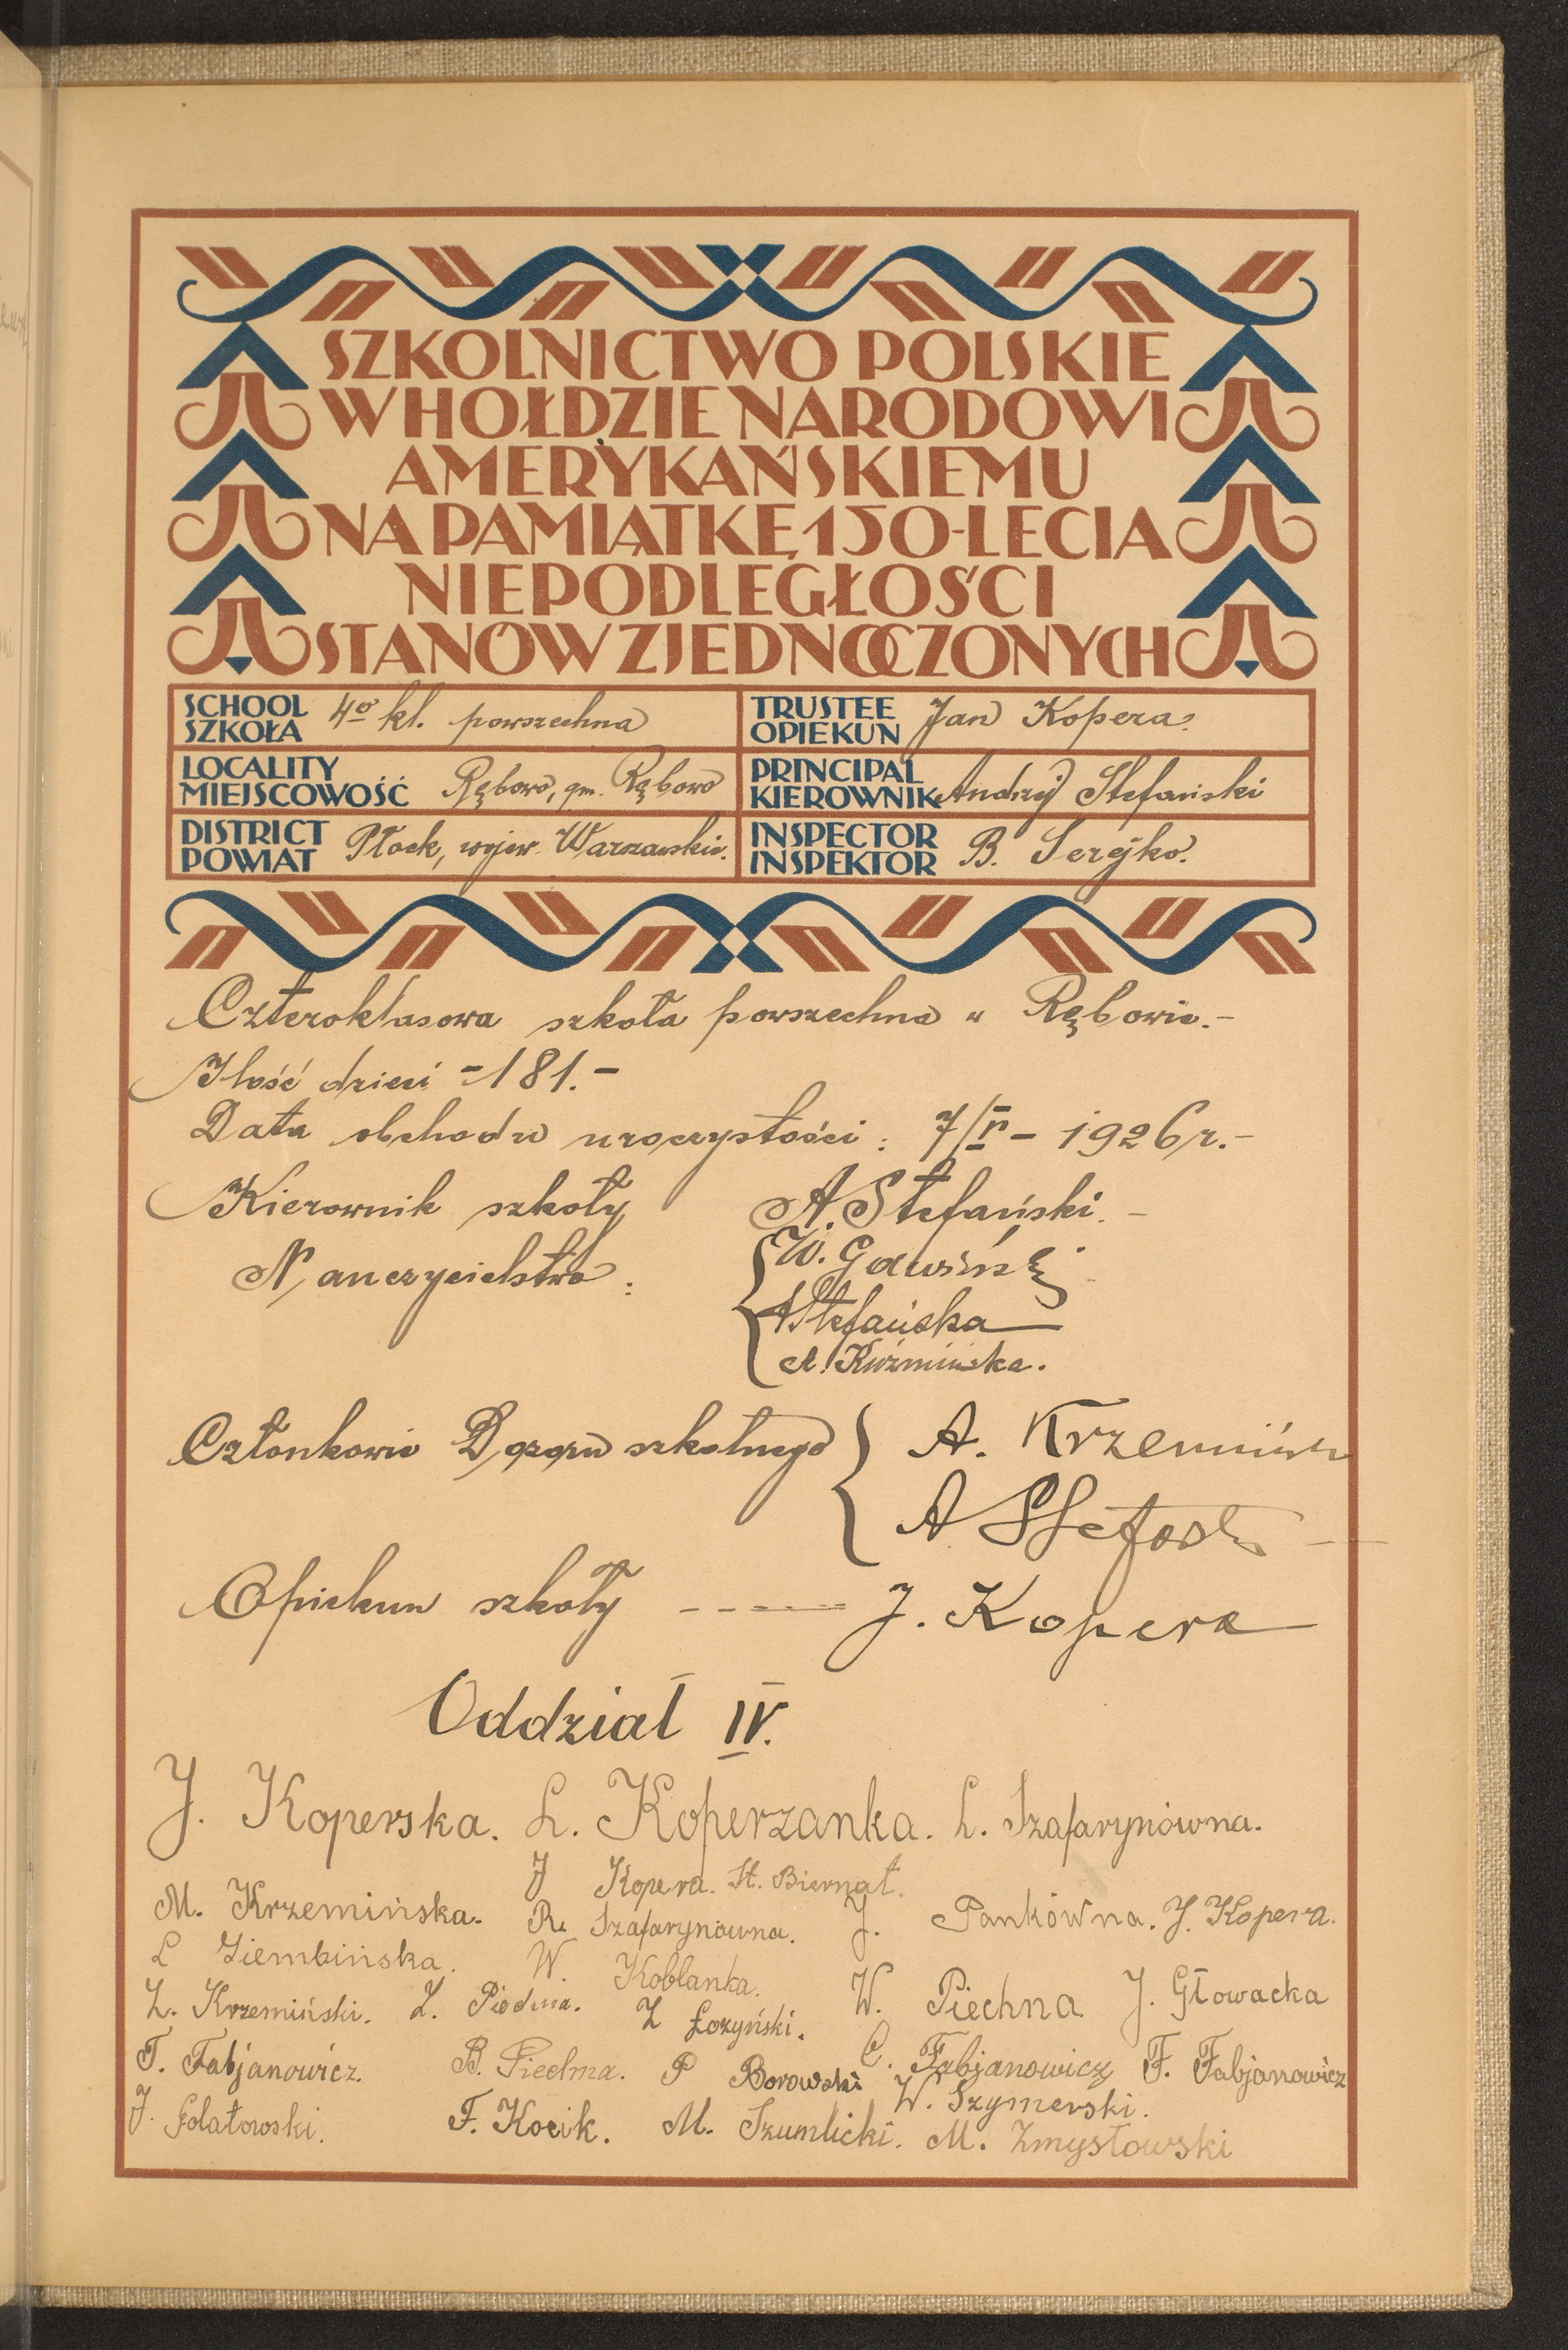 SZKOLNICTWO POLSKIE
W HOŁDZIE NARODOWI
AMERYKAŃSKIEMU
NA PAMIĄTKĘ 150-LECIA
NIEPODLEGŁOŚCI
STANÓW ZJEDNOCZONYCH
SCHOOL
SZKOŁA 4o kl. powszechna
TRUSTEE
OPIEKUN Jan Kopera.
LOCALITY
MIEJSCOWOŚĆ Rębowo, gm. Rębowo
PRINCIPAL
KIEROWNIK Andrzej Stefański
DISTRICT
POWIAT Płock, wojew. Warszawskie.
INSPECTOR
INSPEKTOR B. Serejko.
Czteroklasowa szkoła powszechna w Rębowie.-
Ilość dzieci - 181.-
Data obchodu uroczystości: 7/VI - 1926 r.-
Kierownik szkoły A. Stefański. -
Nauczycielstwo: W.
AStefańska
A. Kuźmińska.
Członkowie Dozoru szkolnego A.
A
Opiekun szkoły ----- J. Kopera
Oddział IV.
J. Koperska. L. Koperzanka. L. Szafarynówna.
J Kopera. St. Biernat.
M. Krzemińska. R. Szafarynówna. J. Pankówna. J. Kopera.
L Ziembińska. W. Koblanka.
Z. Krzemiński. Z. Łozyński. W. Piechna J. Głowacka
T. Fabjanowicz. B. P Borowski C. Fabjanowicz F. Fabjanowicz
W. Szymerski.
J. Golatowski. F. Kocik. M. Szumlicki. M. Zmysłowski